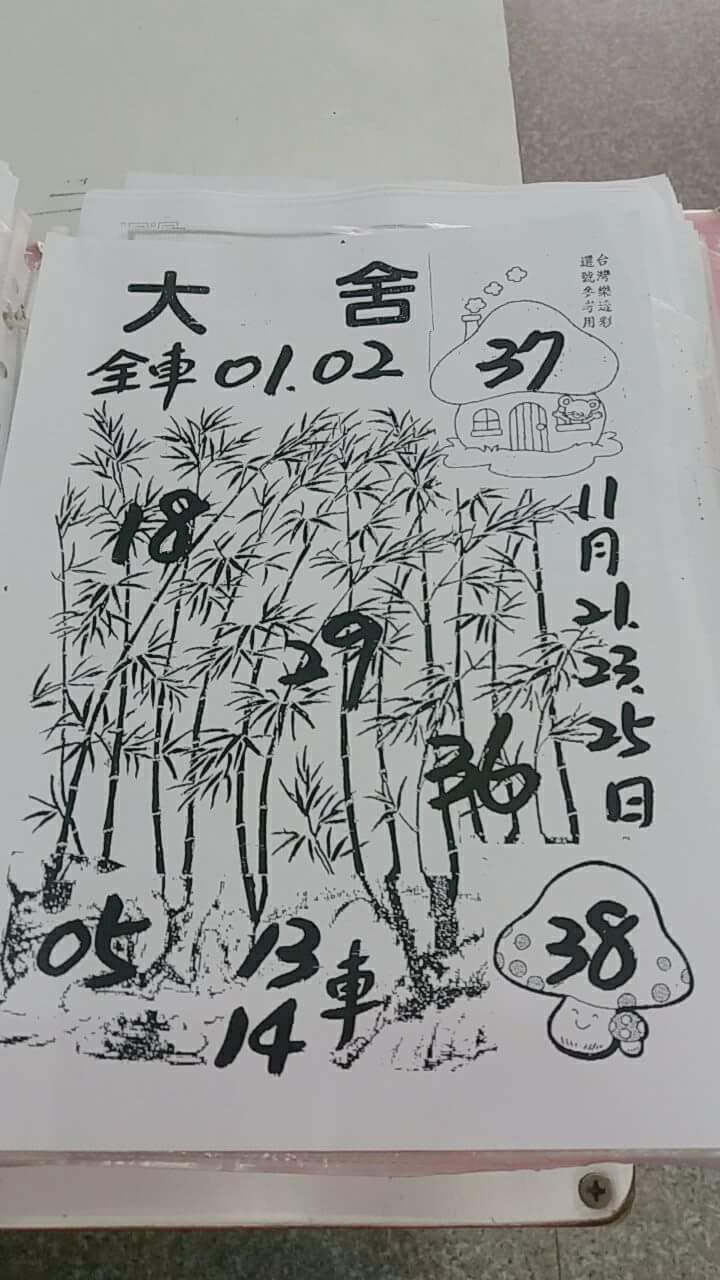 大舍
台灣樂透彩
選號參考用
全車 01. 02
37
18
11月21. 23. 25日
29
36
05
13
14
車
38